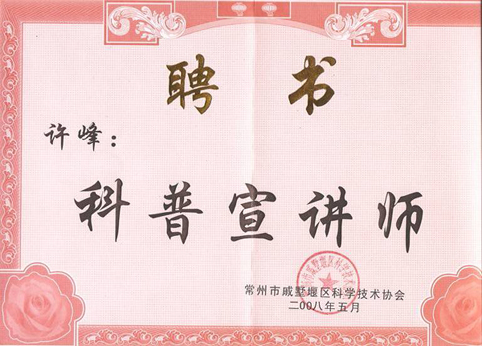 聘书
许峰：
科普宣讲师
常州市戚墅堰区科学技术协会
二00八年五月